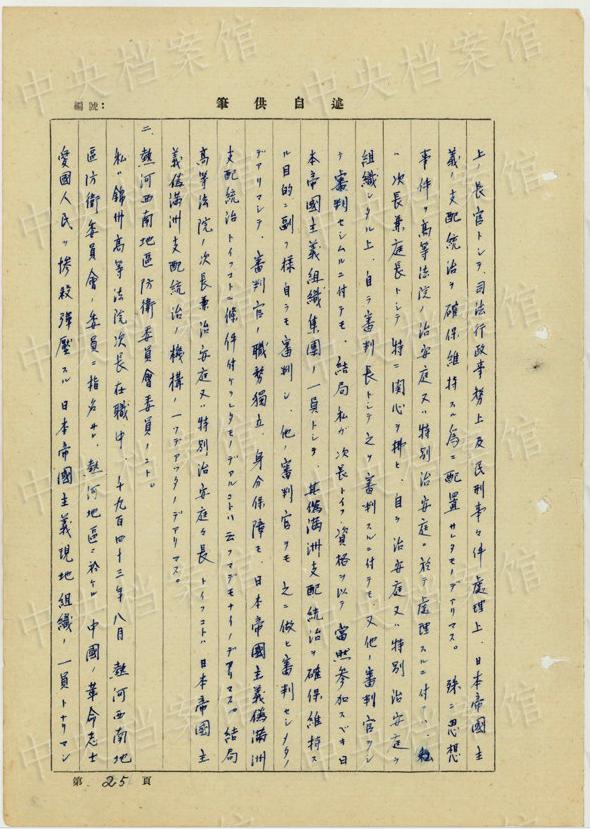 述自供筆
編號:
上ノ長官トシテ、司法行政事務上及民刑事々件処理上、日本帝國主
義ノ支配統治ヲ確保維持スル為ニ配置サレタモノデアリマス。殊ニ思想
事件ヲ高等法院ノ治安庭又ハ特別治安庭ニ於テ処理スルニ付テハ、私
ハ次長兼庭長トシテ特ニ関心ヲ拂ヒ、自ラ治安庭又ハ特別治安庭ヲ
組織シタル上、自ラ審判長トシテ之ヲ審判スルニ付テモ、又他ノ審判官ヲシ
テ審判セシムルニ付テモ、結局私ガ次長トイフ資格ヲ以テ當然参加スベキ日
本帝國主義組織集團ノ一員トシテ、其偽満洲支配統治ヲ確保維持ス
ル目的ニ副フ様自ラモ審判シ、他ノ審判官ヲモ之ニ倣ヒ審判セシメタノ
デアリマシテ、審判官ノ職務獨立、身分保障モ、日本帝國主義偽満洲
支配統治トイフコトニ條件付ケラレタモノデアルコトハ云フマデモナイノデアリマス。結局
高等法院ノ次長兼治安庭又ハ特別治安庭々長トイフコトハ日本帝國主
義偽満洲支配統治ノ機構ノ一ツデアッタノデアリマス。
二、熱河西南地區防衛委員會委員ノコト。
私ハ錦州高等法院次長在職中、千九百四十三年八月熱河西南地
區防衛委員會ノ委員ニ指名サレ、熱河地區ニ於ケル中國ノ革命志士
愛国人民ヲ惨殺弾壓スル日本帝國主義現地組織ノ一員トナリマシ
第 25 頁
中央档案馆